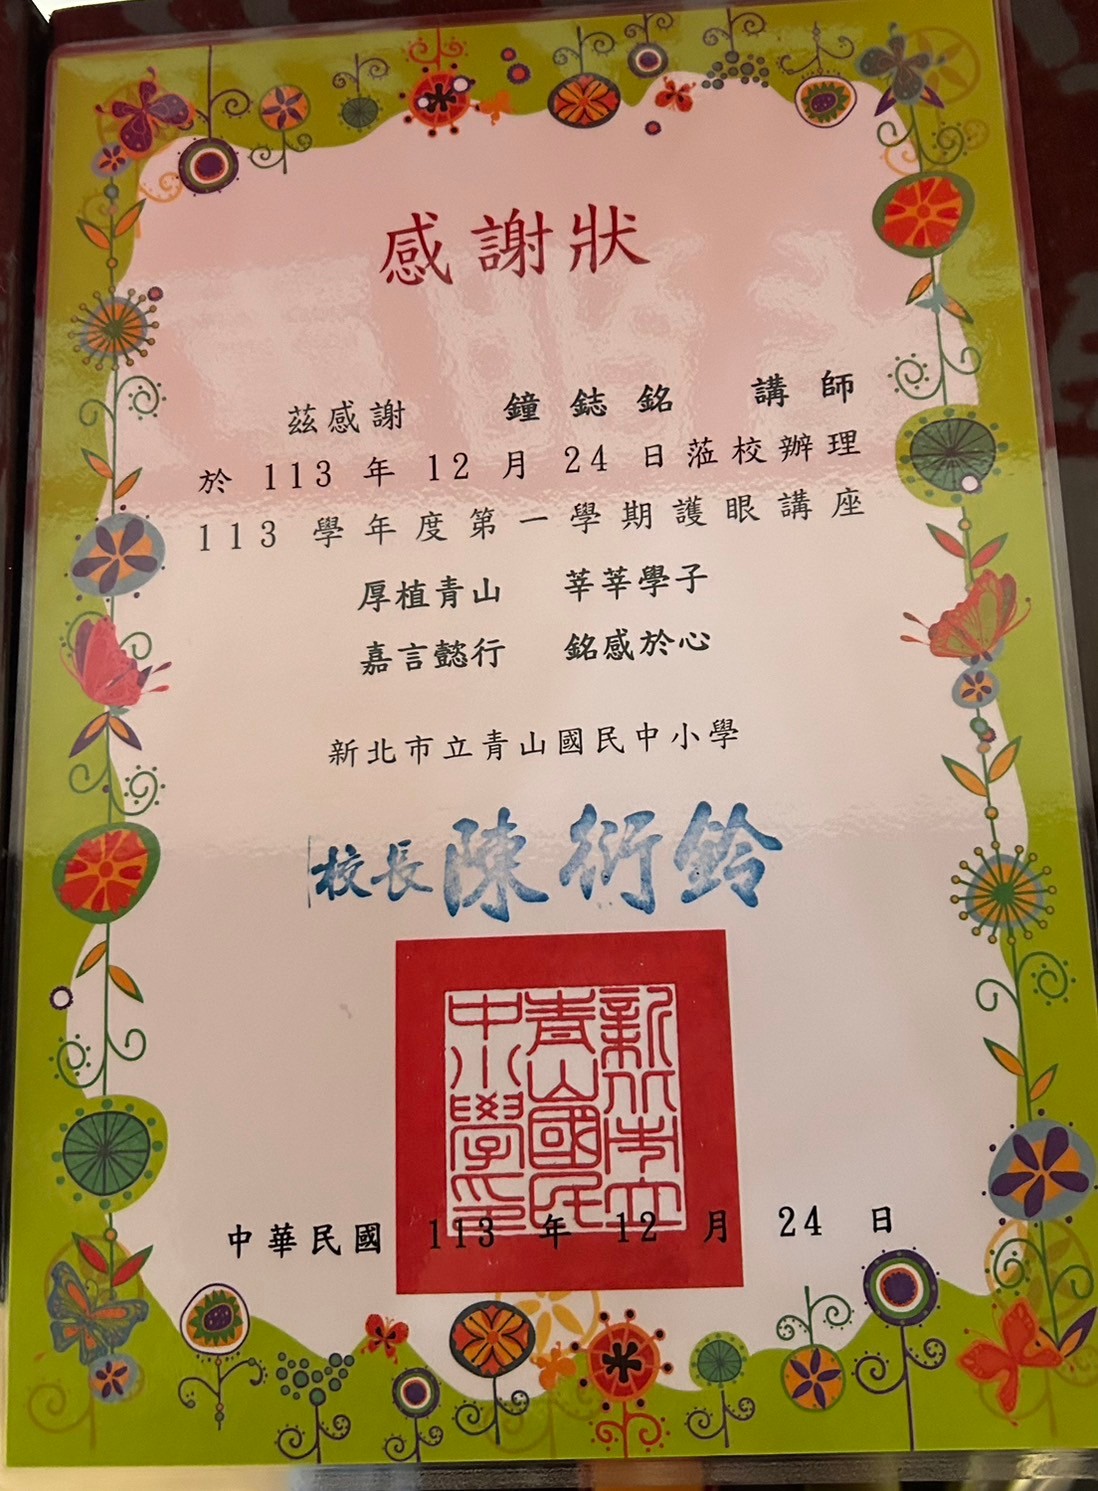 感謝狀
茲感謝 鐘鋕銘 講師
於 113 年 12 月 24 日蒞校辦理
113 學年度第一學期護眼講座
厚植青山 莘莘學子
嘉言懿行 銘感於心
新北市立青山國民中小學
校長 陳衍鈴
新北市立
青山國民
中小學印
中華民國 113 年 12 月 24 日